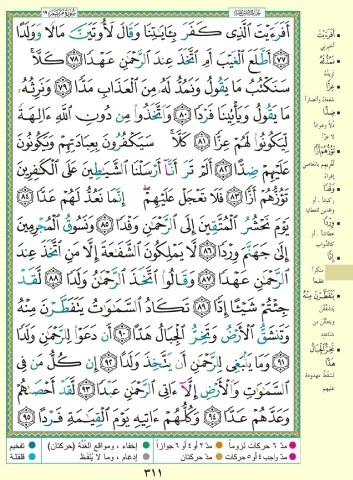 أَفَرَءَيْتَ ٱلَّذِى كَفَرَ بِـَٔايَٰتِنَا وَقَالَ لَأُوتَيَنَّ مَالًا وَوَلَدًا
٧٧ أَطَّلَعَ ٱلْغَيْبَ أَمِ ٱتَّخَذَ عِندَ ٱلرَّحْمَٰنِ عَهْدًا ٧٨ كَلَّا
سَنَكْتُبُ مَا يَقُولُ وَنَمُدُّ لَهُۥ مِنَ ٱلْعَذَابِ مَدًّا ٧٩ وَنَرِثُهُۥ
مَا يَقُولُ وَيَأْتِينَا فَرْدًا ٨٠ وَٱتَّخَذُوا۟ مِن دُونِ ٱللَّهِ ءَالِهَةً
لِّيَكُونُوا۟ لَهُمْ عِزًّا ٨١ كَلَّا سَيَكْفُرُونَ بِعِبَادَتِهِمْ وَيَكُونُونَ
عَلَيْهِمْ ضِدًّا ٨٢ أَلَمْ تَرَ أَنَّآ أَرْسَلْنَا ٱلشَّيَٰطِينَ عَلَى ٱلْكَٰفِرِينَ
تَؤُزُّهُمْ أَزًّا ٨٣ فَلَا تَعْجَلْ عَلَيْهِمْ إِنَّمَا نَعُدُّ لَهُمْ عَدًّا ٨٤
يَوْمَ نَحْشُرُ ٱلْمُتَّقِينَ إِلَى ٱلرَّحْمَٰنِ وَفْدًا ٨٥ وَنَسُوقُ ٱلْمُجْرِمِينَ
إِلَىٰ جَهَنَّمَ وِرْدًا ٨٦ لَّا يَمْلِكُونَ ٱلشَّفَٰعَةَ إِلَّا مَنِ ٱتَّخَذَ عِندَ
ٱلرَّحْمَٰنِ عَهْدًا ٨٧ وَقَالُوا۟ ٱتَّخَذَ ٱلرَّحْمَٰنُ وَلَدًا ٨٨ لَّقَدْ
جِئْتُمْ شَيْـًٔا إِدًّا ٨٩ تَكَادُ ٱلسَّمَٰوَٰتُ يَتَفَطَّرْنَ مِنْهُ
وَتَنشَقُّ ٱلْأَرْضُ وَتَخِرُّ ٱلْجِبَالُ هَدًّا ٩٠ أَن دَعَوْا۟ لِلرَّحْمَٰنِ وَلَدًا
٩١ وَمَا يَنۢبَغِى لِلرَّحْمَٰنِ أَن يَتَّخِذَ وَلَدًا ٩٢ إِن كُلُّ مَن فِى
ٱلسَّمَٰوَٰتِ وَٱلْأَرْضِ إِلَّآ ءَاتِى ٱلرَّحْمَٰنِ عَبْدًا ٩٣ لَّقَدْ أَحْصَىٰهُمْ
وَعَدَّهُمْ عَدًّا ٩٤ وَكُلُّهُمْ ءَاتِيهِ يَوْمَ ٱلْقِيَٰمَةِ فَرْدًا ٩٥
أَفَرَءَيْتَ
أخبرني
نَمُدُّ لَهُ
عِزًّا
شفعاء وأنصاراً
ضِدًّا
تَؤُزُّهُمْ أَزًّا
وَفْدًا
وِرْدًا
إِدًّا
منكراً
يَتَفَطَّرْنَ مِنْهُ
تَخِرُّ ٱلْجِبَالُ
هَدًّا
تسقط مهدودة
عليهم
مدّ ٦ حركات لزوماً مدّ ٢ أو ٤ أو ٦ جوازاً إخفاء ، ومواقع الغنّة (حركتان) تفخيم
مدّ واجب ٤ أو ٥ حركات مدّ حركتان إدغام ، وما لا يُلفظ قلقلة
٣١١